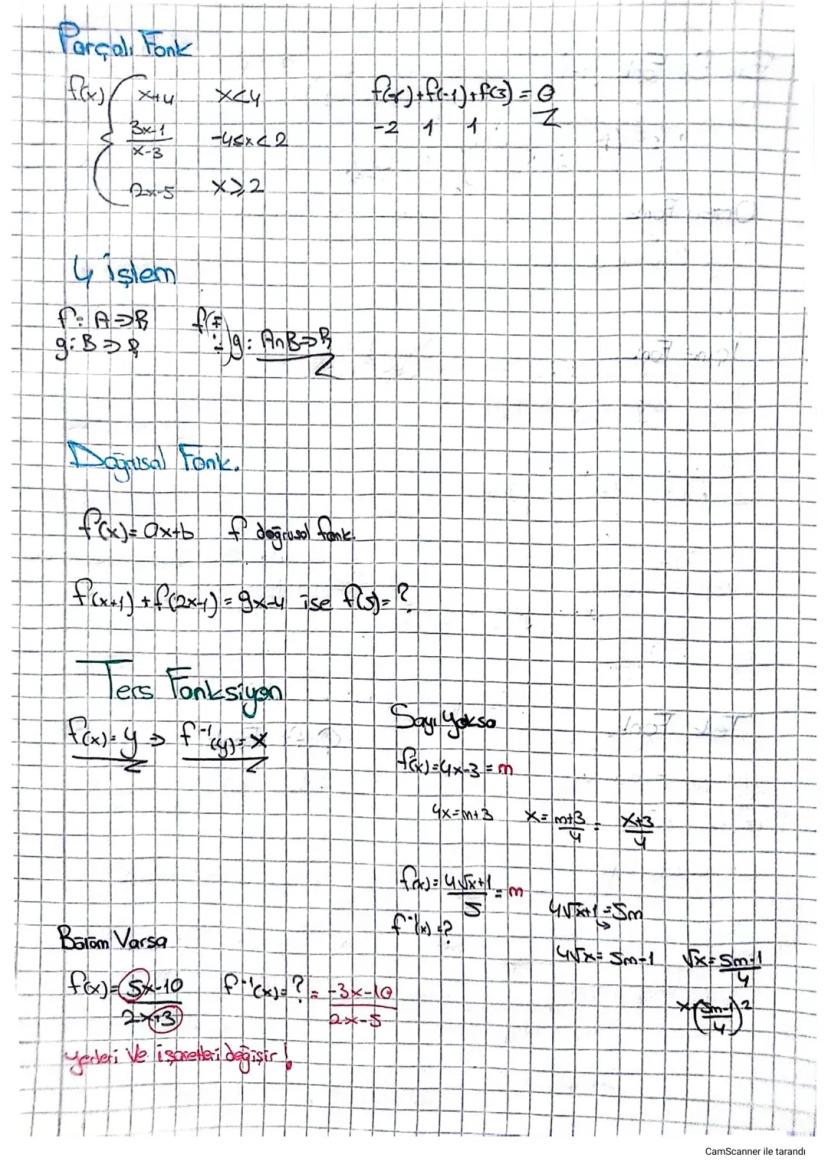 Parçalı Fonk
f(x) { x+4   x<4
3x-1/x-3   -4≤x<2
2x-5   x≥2
f(-1)+f(3) = 0
-2  1  1
4 işlem
f: A⇒R
g: B⇒R
g: A∩B⇒R
Doğrusal Fonk.
f(x)=ax+b   f doğrusal fonk.
f(x+1)+f(2x-1)=9x-4 ise f(5)=?
Ters Fonksiyon
f(x)=y ⇒ f⁻¹(y)=x
Sayı yoksa
f(x)=4x-3=m
4x=m+3   x=m+3/4 = x+3/4
f(x)=4√x+1/5=m
f⁻¹(x)=?
4√x+1=5m
4√x=5m-1   √x=5m-1/4
x(5m-1/4)²
Bölüm Varsa
f(x)=5x-10/2x+3   f⁻¹(x)=? = -3x-10/2x-5
yerleri ve işaretleri değişir!
CamScanner ile tarandı